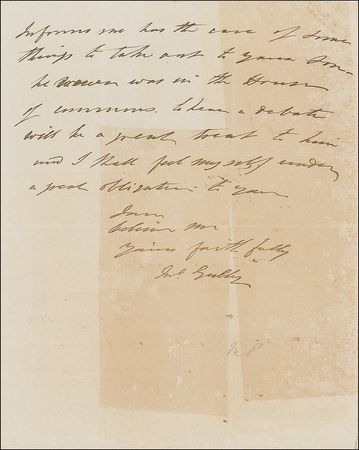 Informs me has the care of some
things to take out to your Son
he never was in the House
of commons. To hear a debate
will be a great treat to him
and I shall feel myself under
a great obligation to you
I am
believe me
Yours faithfully
Jno. Gully
M P